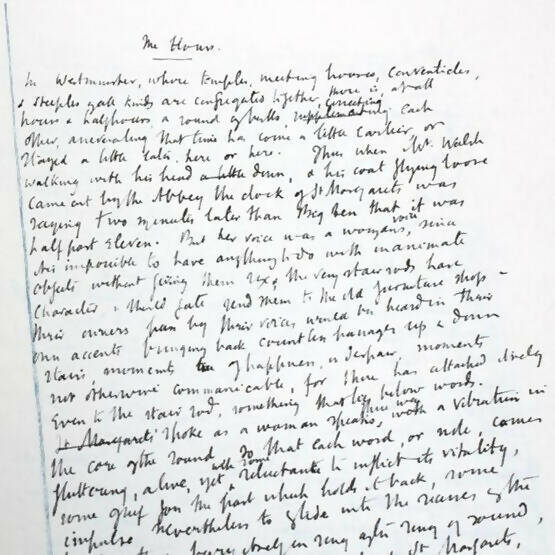 The Hours.
In Westminster, where temples, meeting houses, conventicles,
& steeples of all kinds are congregated together, there is, at all
hours & halfhours, a round of bells, correcting each
other, asseverating that time has come a little earlier, or
stayed a little later, here or here. Thus when Mr. Walsh
walking with his head a little down, & his coat flying loose
came out by the Abbey the clock of St Margarets was
saying two minutes later than Big Ben that it was
half past eleven. But her voice was a womans, since
it is impossible to have anything to do with inanimate
objects without giving them sex, the very stair rods have
character & their fate send them to the old furniture shop
their owners pass by their voices would be heard in their
own accents bringing back countless passages up & down
stairs, moments of happiness, or despair, moments
not otherwise communicable, for there has attached itself
Even to the stair rod, something that lies below words.
St Margarets spoke as a woman speaks, with a vibration in
the core of the sound so that each word, or note, comes
fluttering, alive, yet with some reluctance to inflict its vitality,
some grief for the past which holds it back, some
impulse nevertheless to glide into the recesses of the
itself in ring after ring of sound
St Margarets,